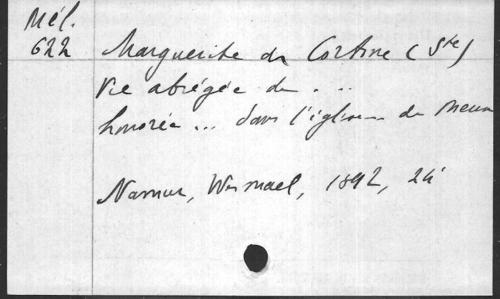 Mél.
622
Marguerite de Cortone (Ste)
Vie abrégée de ...
honorée ... dans l'église de
Namur, Wesmael, 1892, 24°